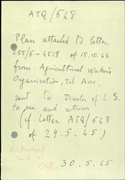 ATQ/648
Plan attached to letter
255/5-4518 of 15.10.44
from Agricultural Water
Organisation, Tel Aviv.
sent to Director of L.S.
to see and return
(of letter ATQ/648
of 29.5.45)
30.5.45